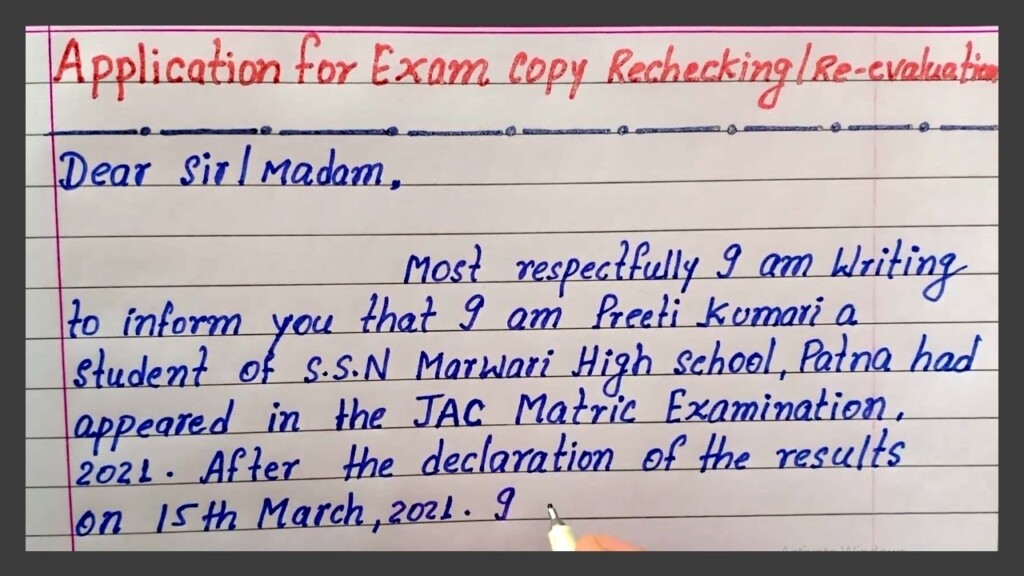 Application for Exam Copy Rechecking/Re-evaluation
Dear Sir/Madam,
Most respectfully I am Writing
to inform you that I am Preeti Kumari a
student of S.S.N Marwari High school, Patna had
appeared in the JAC Matric Examination,
2021. After the declaration of the results
on 15th March, 2021. I
Activate Windows